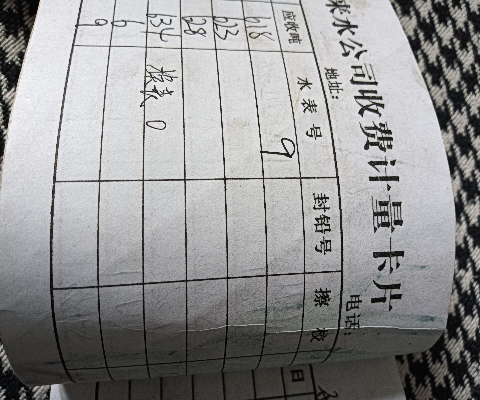 来水公司收费计量卡片
地址: 电话:
应收吨 水表号 封铅号 校
9
28
634 换表 0
6
9
日